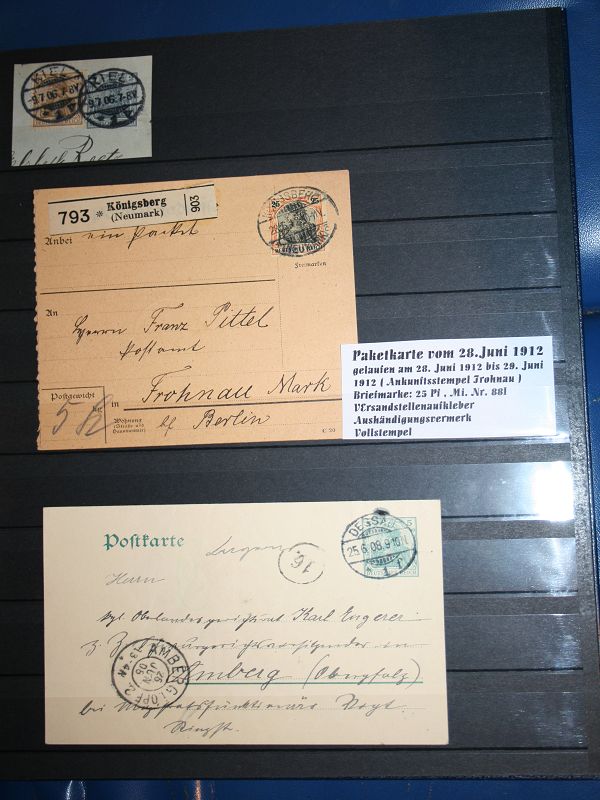 KIEL
9.7.06.7-8V
KIEL
9.7.06.7-8V
793 * Königsberg
(Neumark)
903
Anbei ein Packet
25 25
Freimarken
An
Herrn Franz Pittel
Postamt
Postgewicht
5 kg
in Frohnau Mark
Wohnung
(Straße und
Hausnummer)
b/ Berlin
C 20
Paketkarte vom 28.Juni 1912
gelaufen am 28. Juni 1912 bis 29. Juni
1912 ( Ankunftsstempel Frohnau )
Briefmarke: 25 Pf , Mi. Nr. 88I
Versandstellenaufkleber
Aushändigungsvermerk
Vollstempel
Postkarte
16.
DESSAU
25.6.08.9-10V.
5
Herrn
Kgl. Oberlandesgerichtsrat Karl
in
Amberg (Oberpfalz)
AMBERG
bei Vogt
Ringst.